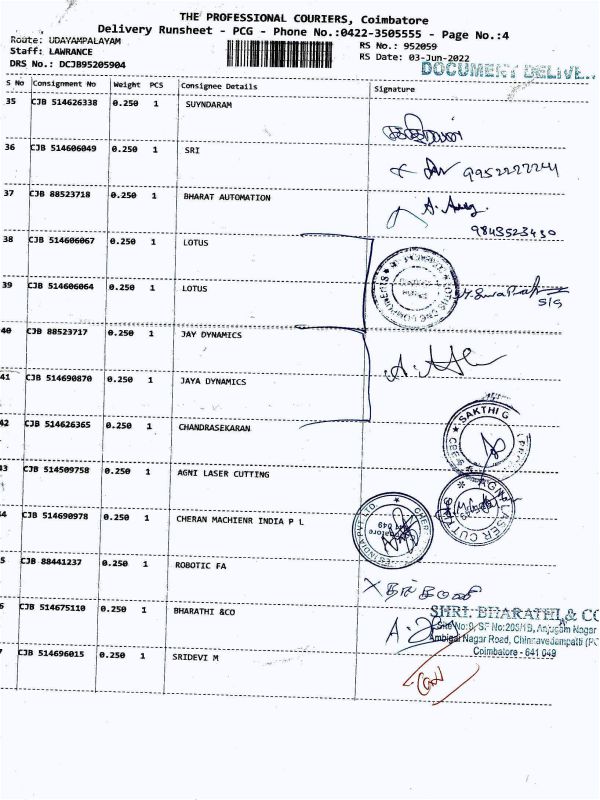 THE PROFESSIONAL COURIERS, Coimbatore
Delivery Runsheet - PCG - Phone No.:0422-3505555 - Page No.:4
Route: UDAYAMPALAYAM
RS No.: 952059
Staff: LAWRANCE
RS Date: 03-Jun-2022
DRS No.: DCJB95205904
DOCUMENT DELIVE
S No Consignment No Weight PCS Consignee Details Signature
35 CJB 514626338 0.250 1 SUYNDARAM
36 CJB 514606049 0.250 1 SRI
37 CJB 88523718 0.250 1 BHARAT AUTOMATION
9843523430
38 CJB 514606067 0.250 1 LOTUS
39 CJB 514606064 0.250 1 LOTUS
40 CJB 88523717 0.250 1 JAY DYNAMICS
41 CJB 514690870 0.250 1 JAYA DYNAMICS
42 CJB 514626365 0.250 1 CHANDRASEKARAN
SAKTHI G
43 CJB 514509758 0.250 1 AGNI LASER CUTTING
AGNI LASER CUTTING
44 CJB 514690978 0.250 1 CHERAN MACHIENR INDIA P L
5 CJB 88441237 0.250 1 ROBOTIC FA
6 CJB 514675110 0.250 1 BHARATHI &CO
SHRI. BHARATHI & CO
Site No:9, SF No:205/1B, Anjugam Nagar
Ambigai Nagar Road, Chinnavedampatti (PO
Coimbatore - 641 049
7 CJB 514696015 0.250 1 SRIDEVI M